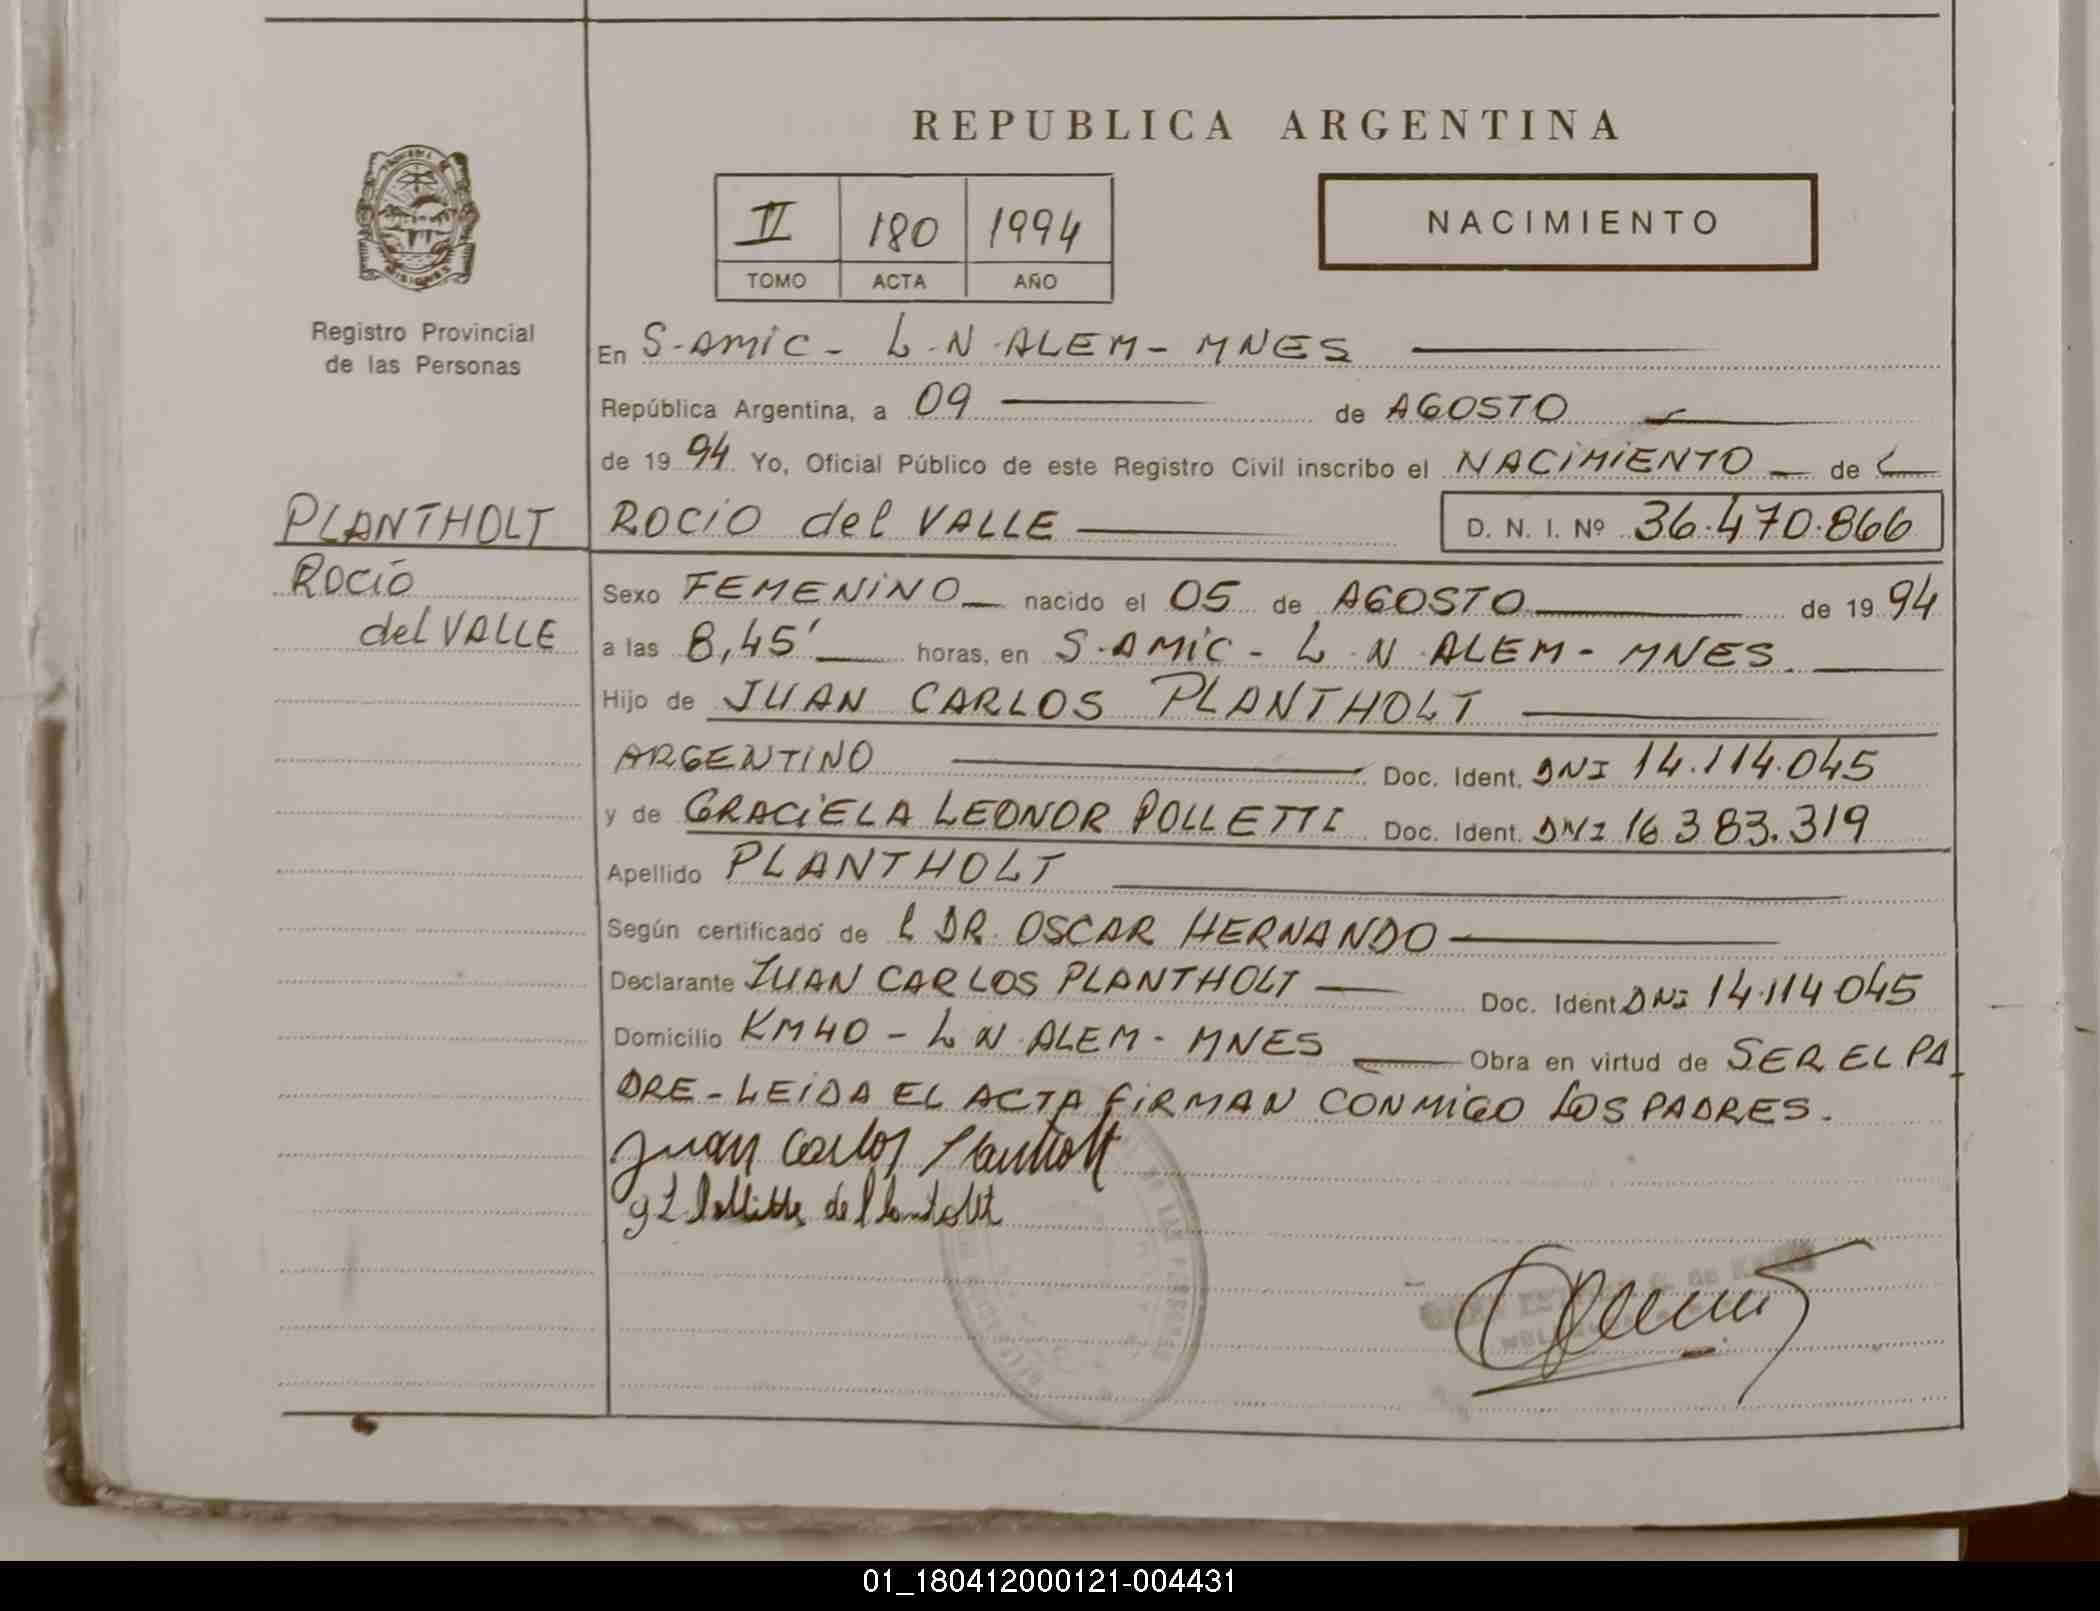 REPUBLICA ARGENTINA
II 180 1994
TOMO ACTA AÑO
NACIMIENTO
MISIONES
Registro Provincial
de las Personas
En S-AMIC- L.N.ALEM- MNES
República Argentina, a 09 de AGOSTO
de 1994 Yo, Oficial Público de este Registro Civil inscribo el NACIMIENTO de
PLANTHOLT ROCIO del VALLE D. N. I. Nº 36.470.866
ROCIO
del VALLE
Sexo FEMENINO nacido el 05 de AGOSTO de 1994
a las 8,45' horas, en S-AMIC- L.N.ALEM- MNES.
Hijo de JUAN CARLOS PLANTHOLT
ARGENTINO Doc. Ident. DNI 14.114.045
y de GRACIELA LEONOR POLLETTI Doc. Ident. DNI 16.383.319
Apellido PLANTHOLT
Según certificado de L DR. OSCAR HERNANDO
Declarante JUAN CARLOS PLANTHOLT Doc. Ident DNI 14.114.045
Domicilio KM40 - L.N.ALEM- MNES Obra en virtud de SER EL PA
DRE-LEIDA EL ACTA FIRMAN CONMIGO LOS PADRES.
Juan Carlos Plantholt
de Plantolt
01_180412000121-004431